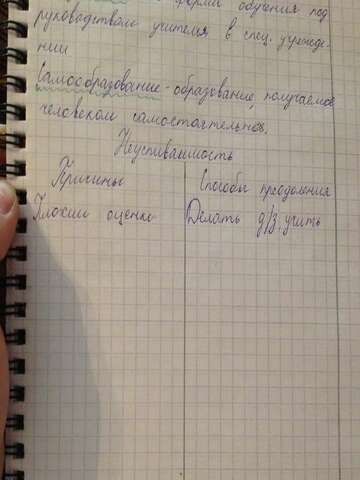 форма обучения под
руководством учителя в спец. учрежде-
нии
Самообразование - образование, получаемое
человеком самостоятельно.
Неуспеваемость
Причины Способы преодоления
Плохие оценки Делать д/з, учить